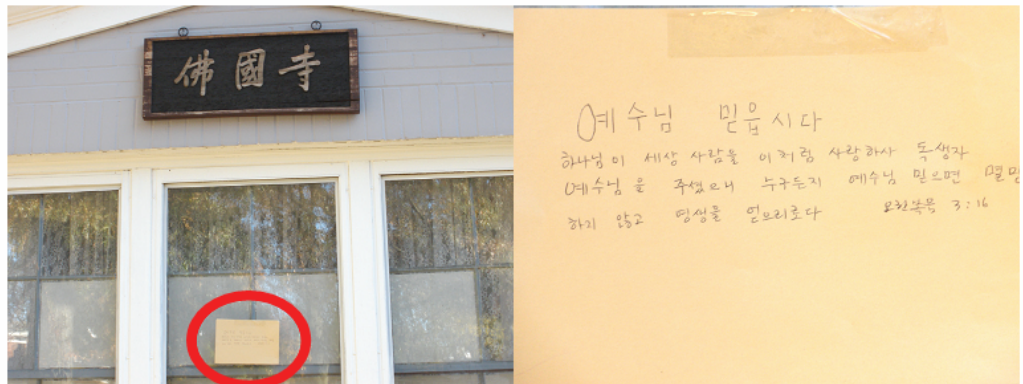 佛國寺
예수님 믿읍시다
하나님이 세상 사람을 이처럼 사랑하사 독생자
예수님을 주셨으니 누구든지 예수님 믿으면 멸망
하지 않고 영생을 얻으리로다 요한복음 3:16